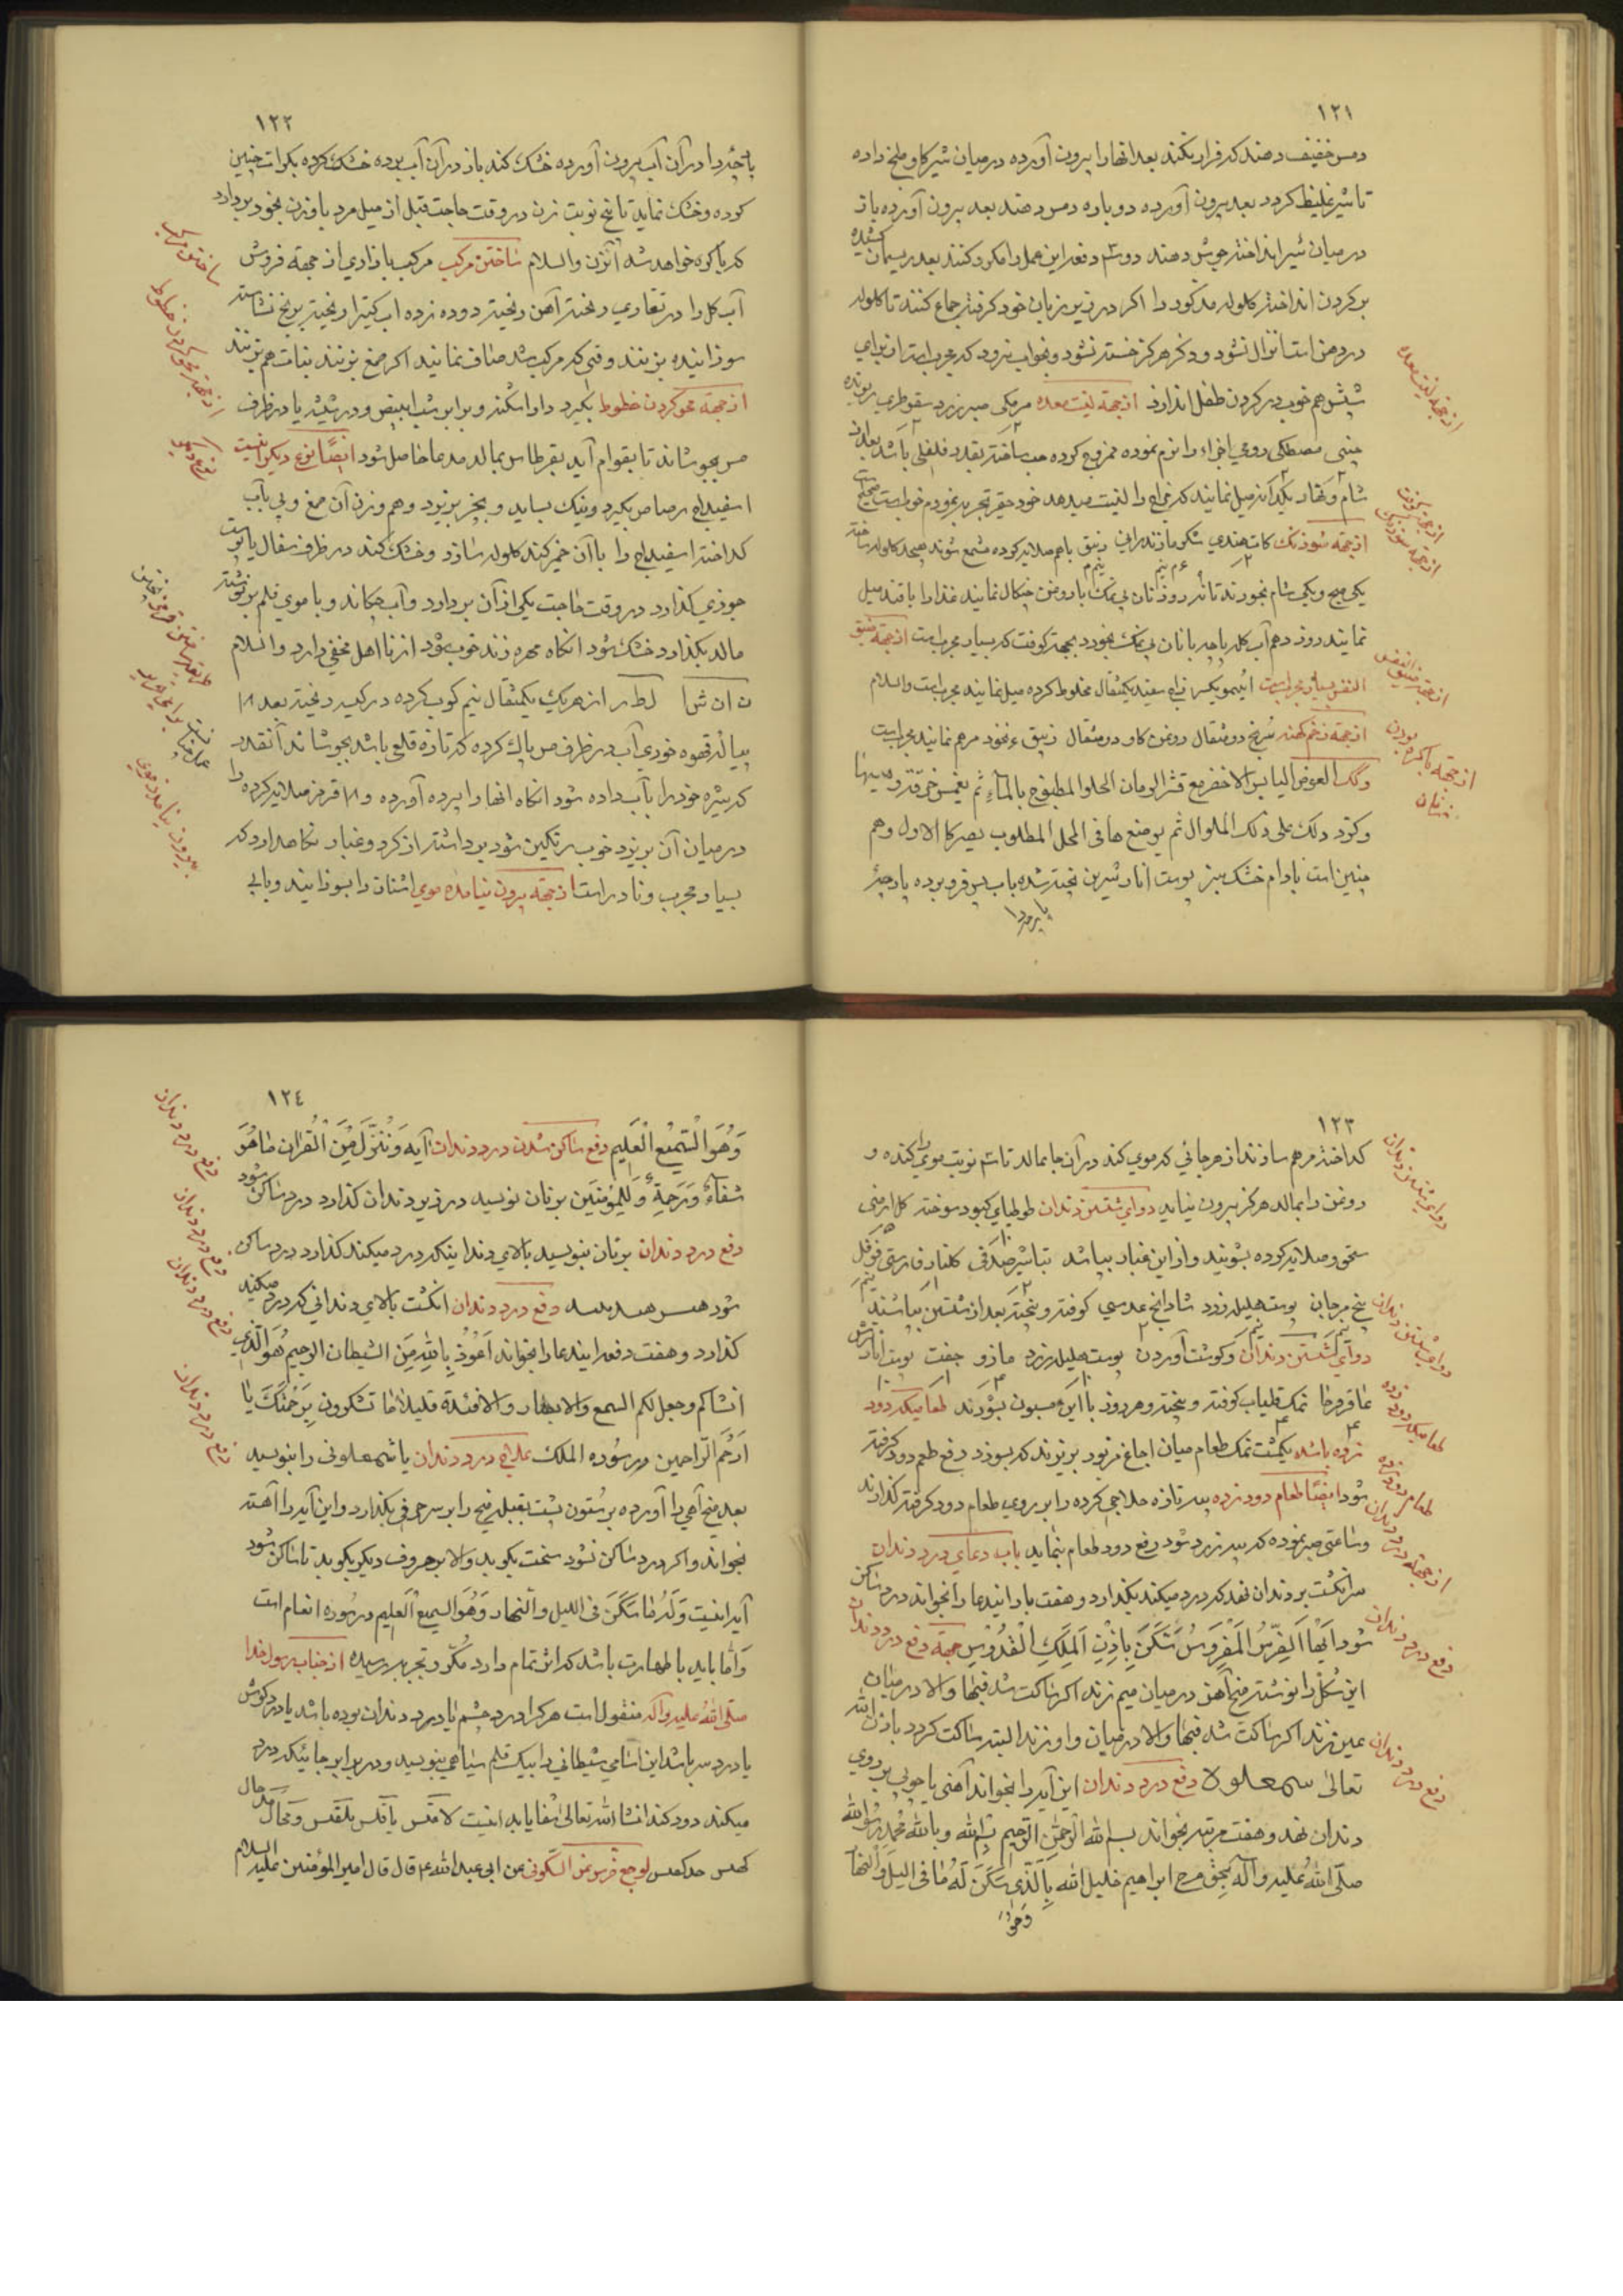 ١٢١
دمس خفیف دهند که فرار نکند بعد انها را بیرون آورده در میان شیر کاو ملح داده
تا شیر غلیظ کردد بعد بیرون آورده دوباره دمس دهند بعد بیرون آورده باز
در میان شیر انداخته جوش دهند دو سه دفعه این عمل را مکرر کنند بعد ریسمان کشیده
بر کردن انداخته کلوله مذکور را اکر در زیر زبان خود کرفته جماع کنند تا کلوله
در دهن است انزال نشود و ذکر هرکز خسته نشود و بخواب نرود که مجرب است از برای
شپش هم خوب در کردن طفل اندازد از جهة لینت معده مرمکی صبر زرد سقوطری ریوند
چینی مصطکی رومی اجزاء را نرم نموده ممزوج کرده حب ساخته بقدر فلفلی باشد بعد از
شام و نهار یکدانه میل نمایند که مزاج را لینت میدهد خود حقیر تجربه نمودم خوبست صحیح است
از جهة سوزنک کات هندی شکر مازندرانی زیبق باهم صلایه کرده شمع شوند صبحه کلوله ساخته
یکی صبح و یکی شام بخورند تا نه روز نان بی نمک با روغن چنکال نمایند غذا را با قند میل
نمایند روز دهم آب کله پاچه با نان بی نمک بخورد بجهة کوفت که بسیار مجرب است از جهة ضیق
النفس بسیار مجربست آبلیمو یکسر زاج سفید یکمثقال مخلوط کرده میل نمایند مجرب است والسلام
از جهة زخم کهنه سرنج دو مثقال روغن کاو دو مثقال زیبق ۴ نخود مرهم نمایند مجرب است
الیابس الاخضر مع قشر الرمان الحلو المطبوخ بالماء ثم یغمس خرقة
و کرر ذلک علی ذلک المنوال ثم یوضعها فی المحل المطلوب یصیر کالاول و هم
چنین است بادام خشک سبز پوست انار شیرین پخته شده باب پس فرو برده پارچه
از جهة لینت معده
از جهة کوفت
از جهة سوزنک
از جهة ضیق النفس
از جهة باکره بودن زنان
١٢٢
پارچه را در آن آب بیرون آورده خشک کند باز در آن آب برده خشک کرده بکرات چنین
کرده و خشک نماید تا پنج نوبت زن در وقت حاجت قبل از میل مرد با وزن بخود بردارد
که باکره خواهد شد آنزن والسلام ساختن مرکب مرکب بازاری از جهة فروش
آب کل را در تغاری ریخته آهن ریخته دوده زده آب کتیرا ریخته برنج نشاسته
سوزانیده بزنند وقتی که مرکب شد صاف نمایند اکر صمغ بزنند نبات هم بزنند
از جهة محو کردن خطوط بکیرد دار اشکنه و برابر شب ابیض و در شیشه یا در ظرف
مس بجوشاند تا بقوام آید بقرطاس بمالد مدعا حاصل شود ایضًا نوع دیکر اینست
اسفیداج رصاص بکیرد و نیک بساید و بخر بزبود و هم وزن آن صمغ عربی بآب
کداخته اسفیداج را با آن خمیر کند کلوله سازد و خشک کند در ظرف سفال یا پوست
جوزی کذارد در وقت حاجت یکی از آن بردارد و آب چکاند و با موی قلم بر نوشته
مالد بکذارد خشک شود انکاه مهره زند خوب شود از نا اهل مخفی دارد والسلام
از هر یک یکمثقال نیم کوب کرده در کیسه ریخته بعد
پیاله قهوه خوری آب در ظرف مس پاک کرده که تازه قلعی باشد بجوشاند آنقدر
که شیره خود را بآب داده شود انکاه انها را بیرون آورده و قرمز صلایه کرده را
در میان آن بریزد خوب رنکین شود برداشته از کرد و غبار نکاهدارد که
بسیار مجرب و نادر است از جهة بیرون نیامدن موی اشنان را بسوزانند و با پی
ساختن مرکب
از جهة محو کردن خطوط
نوع دیکر
بیرون نیامدن موی
١٢٣
کداخته مرهم سازند از هرجائی که موی کند در آن جا بمالد تا سه نوبت موی را کنده و
روغن را بمالد هرکز بیرون نیاید دوای شستن دندان طوطیای کبود سوخته کل ارمنی
سحق و صلایه کرده بشویند و از این غبار بپاشد تباشیر صدفی کلنار فارسی فوفل
بیخ مرجان پوست هلیله زرد شادانج عدسی کوفته و پخته بعد از شستن بپاشند
دوای شستن دندان و کوشت آوردن پوست هلیله زرد مازو جفت پوست انار ترش
عاقرقرحا نمک قلیاب کوفته و پخته و هر روز با این صبون بشورند طعامیکه دود
زده باشد یکمشت نمک طعام میان اجاغ مزبور بریزند که بسوزد دفع طعم دود کرفته
شود ایضًا طعام دود زده پیه تازه حلاجی کرده را بر روی طعام دود کرفته کذارند
و ساعتی صبر نموده که پیه زرد شود رفع دود طعام بنماید باب دعای درد دندان
سر انکشت بر دندان نهد که درد میکند بکذارد و هفت بار ایندعا را بخواند درد ساکن
شود ایها الضرس المضروس سکن باذن الملک القدوس جهة دفع درد دندان
این شکل را نوشته میخ آهن در میان میم زند اکر ساکت شد فبها والا در میان
عین زند اکر ساکت شد فبها والا در میان واو زند البته ساکت کردد باذن الله
تعالی سمعلولا دفع درد دندان این آیه را بخواند آهنی یا چوبی بر روی
دندان نهد و هفت مرتبه بخواند بسم الله الرحمن الرحیم بسم الله و بالله محمد رسول الله
صلی الله علیه و آله بحق ابراهیم خلیل الله بالذی سکن له ما فی اللیل والنهار
وهو
دوای شستن دندان
دوای شستن دندان
طعامیکه دود زده
طعام دود زده
از جهة درد دندان
دفع درد دندان
دفع درد دندان
١٢٤
وَهُوَ السَّمیعُ الْعَلیم دفع ساکن شدن درد دندان آیه وَنُنَزِّلُ مِنَ الْقُرانِ مٰا هُوَ
شفاءٌ وَرَحمةٌ لِلمُؤمنین بر نان نویسد در زیر دندان کذارد درد ساکن شود
دفع درد دندان بر نان بنویسد بالای دندانیکه درد میکند کذارد درد ساکن
شود دفع درد دندان انکشت بالای دندانی که درد میکند
کذارد و هفت دفعه ایندعا را بخواند اعوذ بالله من الشیطان الرجیم هو الذی
انشاکم وجعل لکم السمع والابصار والافئدة قلیلا ما تشکرون برحمتک یا
ارحم الراحمین در سوره الملک علاج درد دندان یا شمعلونی را بنویسد
بعد میخ آهی را آورده بر ستون پشت بقبله میخ را بر سر حرفی بکذارد و این آیه را آهسته
بخواند و اکر درد ساکن نشود سخت بکوبد والا بر حروف دیکر بکوبد تا ساکن شود
آیه اینست وله ما سکن فی اللیل والنهار وهو السمیع العلیم در سوره انعام است
و اما باید با طهارت باشد که اثر تمام دارد مکرر و تجربه رسیده از جناب رسول خدا
صلی الله علیه و آله منقول است هرکرا درد چشم یا درد دندان بوده باشد یا درد کوش
یا درد سر باشد این اسامی شیطانی را بیک قلم سیاهی بنویسد و در برابر جائیکه درد
میکند دود کند انشا الله تعالی شفا یابد اینست
لوجع ضرس عن السکونی عن ابی عبدالله ع قال قال امیر المؤمنین علیه السلام
دفع درد دندان
دفع درد دندان
دفع درد دندان
دفع درد دندان